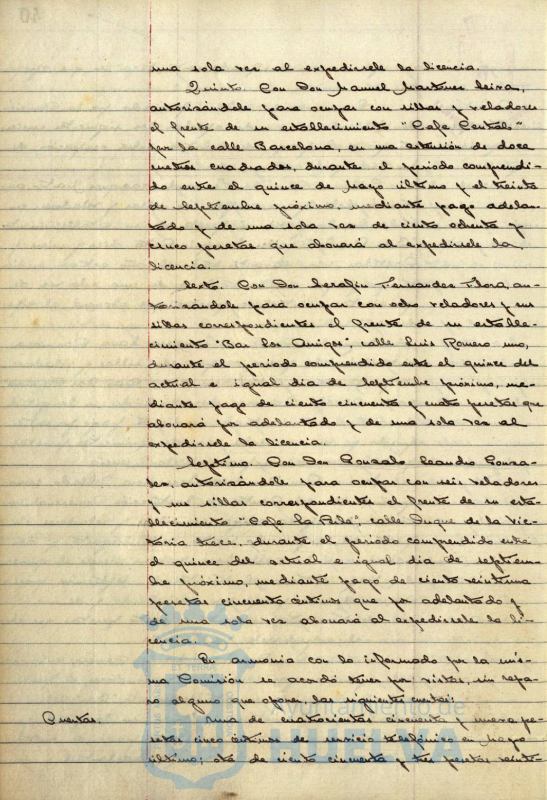 una sola vez al expedirsele la licencia.
Quinto. Con Don Manuel Martinez Leira,
autorizándole para ocupar con sillas y veladores
el frente de su establecimiento "Cafe Central"
por la calle Barcelona, en una extensión de doce
metros cuadrados, durante el periodo comprendi-
do entre el quince de Mayo último y el treinta
de Septiembre próximo, mediante pago adelan-
tado y de una sola vez de ciento ochenta y
cinco pesetas que abonará al expedirsele la
licencia.
Sexto. Con Don Serafin Fernandez Flora, au-
torizándole para ocupar con ocho veladores y sus
sillas correspondientes el frente de su estable-
cimiento "Bar Los Amigos", calle Luis Romero uno,
durante el periodo comprendido entre el quince del
actual e igual dia de Septiembre próximo, me-
diante pago de ciento cincuenta y cuatro pesetas que
abonará por adelantado y de una sola vez al
expedirsele la licencia.
Septimo. Con Don Gonzalo Leandro Gonza-
lez, autorizándole para ocupar con seis veladores
y sus sillas correspondientes el frente de su esta-
blecimiento "Cafe La Perla", calle Duque de la Vic-
toria trece, durante el periodo comprendido entre
el quince del actual e igual dia de Septiem-
bre próximo, mediante pago de ciento veintiuna
pesetas cincuenta céntimos que por adelantado y
de una sola vez abonará al expedirsele la li-
cencia.
En armonia con lo informado por la mis-
ma Comisión se acordó tener por vistas, sin repa-
ro alguno que oponer, las siguientes cuentas:
Cuentas. Una de cuatrocientas cincuenta y nueve pe-
setas cinco céntimos de servicio telefónico en Mayo
último; otra de ciento cincuenta y tres pesetas veinti-
Ayuntamiento de
HUELVA